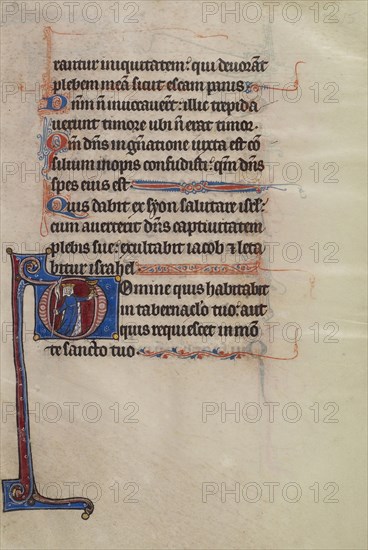 rantur iniquitatem: qui deuorāt
plebem meā sicut escam panis
Dn̄m n̄ inuocauer̄t: illic trepida
uerunt timore ubi n̄ erat timor.
Qm̄ dn̄s in gn̄atione iusta est cō
silium inopis confudisti: qm̄ dn̄s
spes eius est
Quis dabit ex syon salutare isrl̄:
cum auerterit dn̄s captiuitatem
plebis sue: exultabit iacob ⁊ leta
bitur israhel.
Domine quis habitabit
in tabernac̄lo tuo: aut
quis requiescet in mō
te sancto tuo.
PHOTO12 PHOTO12 PHOTO12
PHOTO12 PHOTO12 PHOTO12
PHOTO12 PHOTO12 PHOTO12
PHOTO12 PHOTO12 PHOTO12
PHOTO12 PHOTO12 PHOTO12
PHOTO12 PHOTO12 PHOTO12